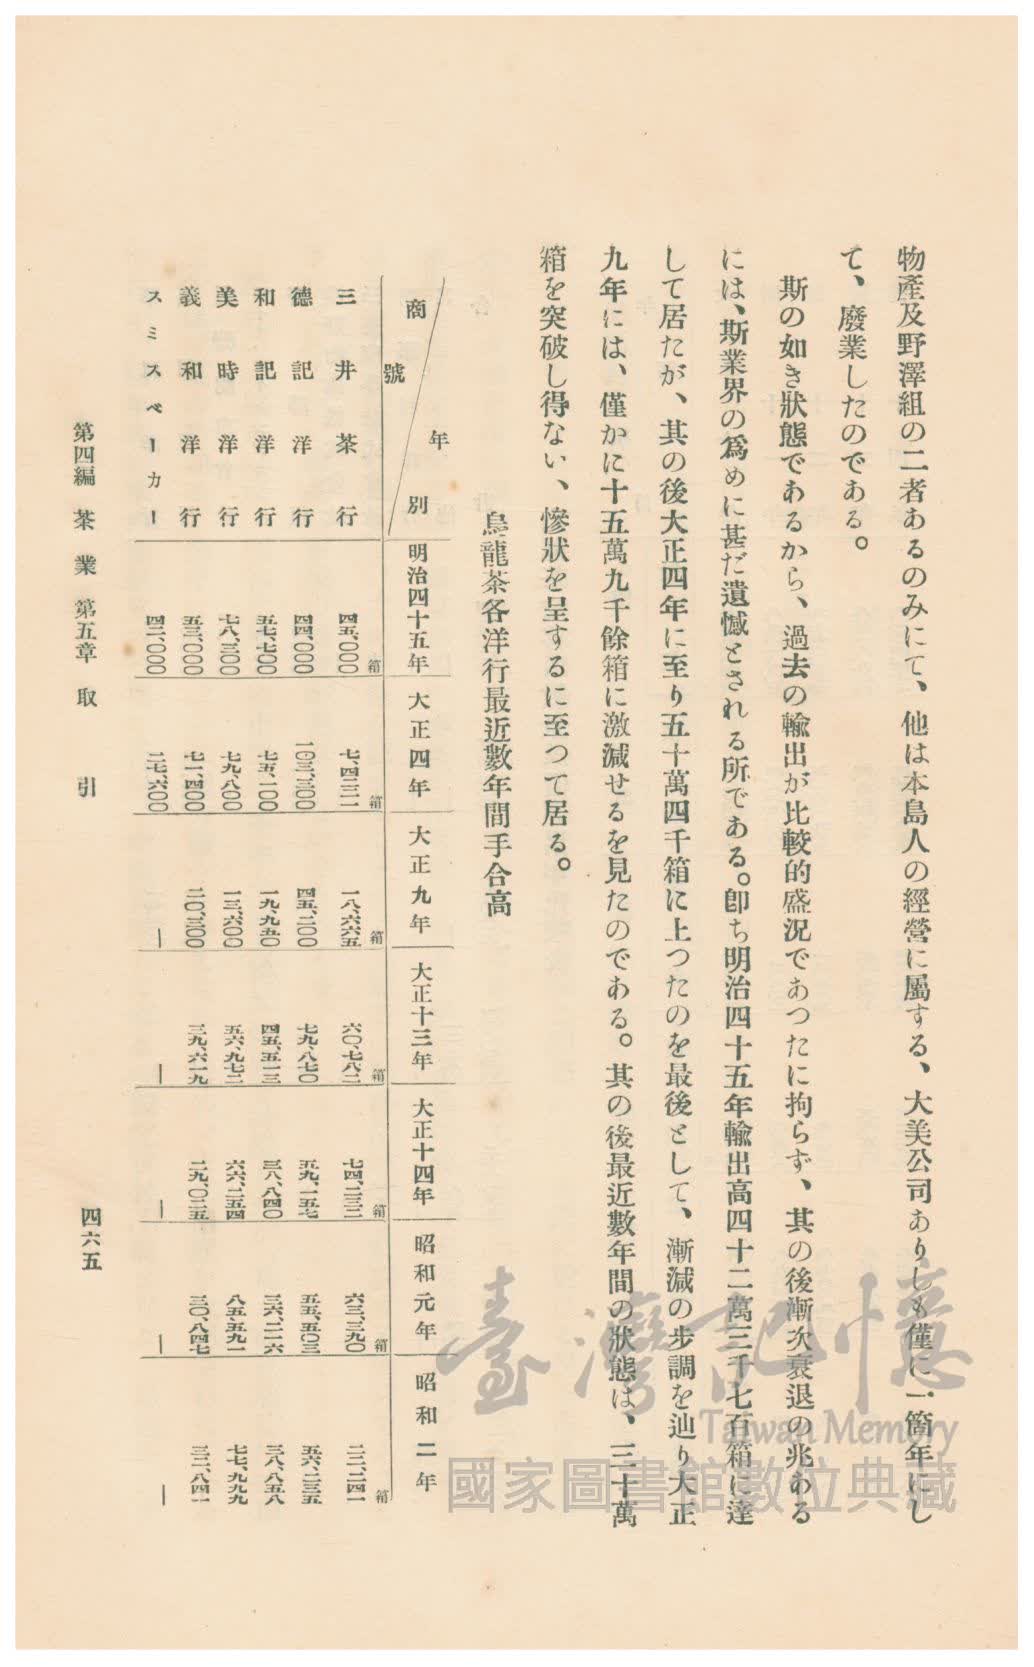 物產及野澤組の二者あるのみにて、他は本島人の經營に屬する、大美公司ありしも僅に一箇年にし
て、廢業したのである。
斯の如き狀態であるから、過去の輸出が比較的盛況であつたに拘らず、其の後漸次衰退の兆ある
には、斯業界の爲めに甚だ遺憾とされる所である。卽ち明治四十五年輸出高四十二萬三千七百箱に達
して居たが、其の後大正四年に至り五十萬四千箱に上つたのを最後として、漸減の步調を辿り大正
九年には、僅かに十五萬九千餘箱に激減せるを見たのである。其の後最近數年間の狀態は、三十萬
箱を突破し得ない、慘狀を呈するに至つて居る。
烏龍茶各洋行最近數年間手合高
商號 年別 明治四十五年 大正四年 大正九年 大正十三年 大正十四年 昭和元年 昭和二年
三井茶行 四五、〇〇〇箱 七、四三一箱 一八、六六五箱 六〇、七八二箱 七四、二三二箱 六三、三九〇箱 二二、二四一箱
德記洋行 四四、〇〇〇 一〇三、三〇〇 四五、二〇〇 七九、八七〇 五九、一五七 五五、五〇三 五六、二三五
和記洋行 五七、七〇〇 七五、一〇〇 一九、九五〇 四五、五一三 三八、八四〇 三六、二一六 三八、八五八
美時洋行 七八、三〇〇 七九、八〇〇 一三、六〇〇 五六、九七二 六六、二五四 八五、五九一 七七、九九九
義和洋行 五三、〇〇〇 七一、四〇〇 二〇、三〇〇 三九、六一九 二九、〇二五 三〇、八四七 三二、八四一
スミスベーカー 四二、〇〇〇 二七、六〇〇 ― ― ― ― ―
第四編 茶業 第五章 取引
四六五
臺灣記憶
Taiwan Memory
國家圖書館數位典藏